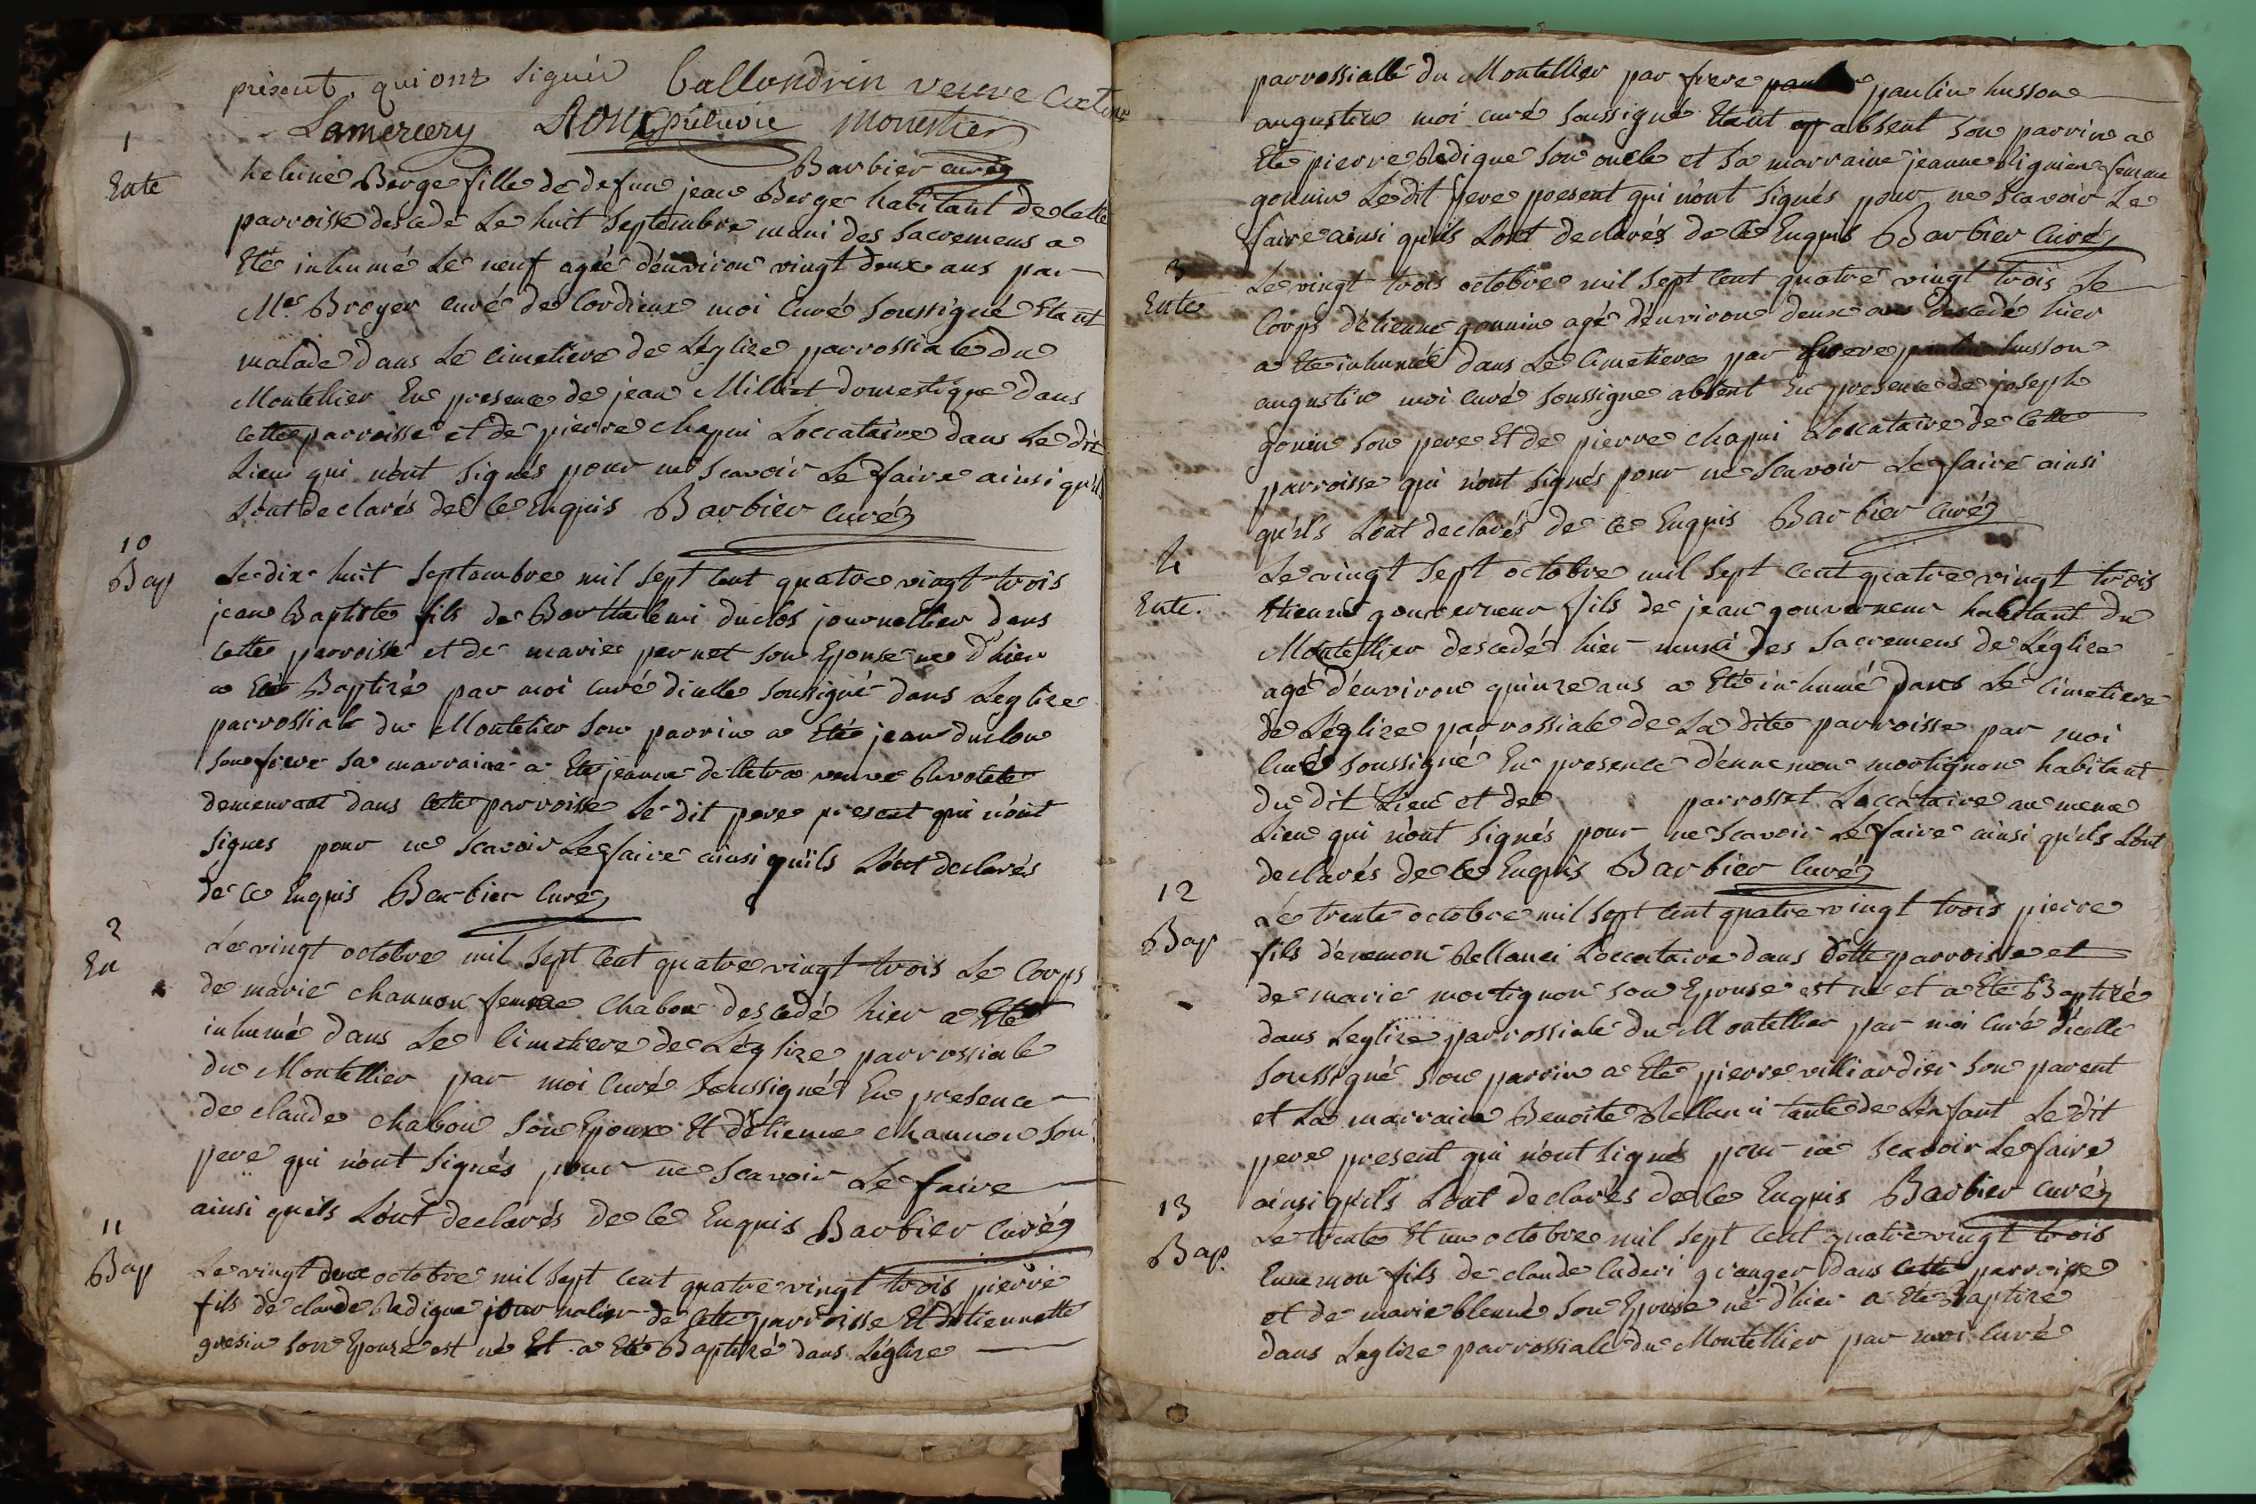 présent, qui ont signér Ballandrin veuve
Lamercery Roux monestier
Barbier curé
1
Ente
heleine Berge fille de defun jean Berge habitant de cette
parroisse descede Le huit Septembre muni des Sacremens a
Eté inhumé Le neuf agéé d'environ vingt deux ans par
Mre Broyer curé de Cordieux moi Curé Soussigné Etant
malade dans Le Cimetiere de L'eglize parrossiale du
Montellier En presence de jean Milliet domestique dans
cette parroisse et de pierre chapui Loccataire dans Le dit
Lieu qui n'ont Signés pour ne Scavoir Le faire ainsi qu'ils
L'ont declarés de Ce Enquis Barbier curé
10
Bap
Le dix huit Septembre mil Sept Cent quatre vingt trois
jean Baptiste fils de Barthelemi duclos journallier dans
cette parroisse et de marie pernet Son Epouse ne d'hier
a Eté Baptizé par moi curé d'icelle Soussigné dans L'eglize
parrossiale du Montelier Son parrin a Eté jean duclou
Son frere Sa marraine a Eté jeanne delletra veuve
demeurant dans cette parroisse Le dit pere present qui n'ont
Signes pour ne Scavoir Le faire ainsi qu'ils L'ont declarés
de Ce Enquis Barbier Curé
2
En
Le vingt octobre mil Sept Cent quatre vingt trois Le Corps
de marie channon femme Chabou descedé hier a Eté
inhumé dans Le Cimetiere de L'églize parrossiale
du Montellier par moi Curé Soussigné En presence
de claude chabou Son Epoux Et d'Etienne channon Son
pere qui n'ont Signés pour ne Scavoir Le faire
ainsi qu'ils L'ont declarés de Ce Enquis Barbier Curé
11
Bap
Le vingt deux octobre mil Sept Cent quatre vingt trois pierre
fils de claude Redigue journalier de Cette parroisse Et d'Etiennette
gresin Son Epouse est né Et a Eté Baptizé dans L'églize
parrossialle du Montellier par frere paulin husson
augustin moi curé Soussigné Etant absent Son parrin a
Eté pierre Redigue Son oncle et Sa marraine jeanne femme
gounin Le dit pere present qui n'ont Signés pour ne Scavoir Le
faire ainsi qu'ils L'ont declarés de Ce Enquis Barbier Curé
3
Ente
Le vingt trois octobre mil Sept Cent quatre vingt trois Le
Corps d'étienne gounin agé d'environ deux ans descedé hier
a Eté inhumé dans Le Cimetiere par frere paulin husson
augustin moi Curé Soussigne absent En presence de joseph
gonin Son pere Et de pierre chapui Loccataire de Cette
parroisse qui n'ont Signés pour ne Scavoir Le faire ainsi
qu'ils L'ont declarés de Ce Enquis Barbier Curé
4
Ente.
Le vingt Sept octobre mil Sept Cent quatre vingt trois
Etienne gouverneur fils de jean gouverneur habitant du
Montellier descedé hier muni des Sacremens de L'églize
agé d'environ quinze ans a Eté inhumé dans Le Cimetiere
de L'églize parrossiale de La dite parroisse par moi
Curé Soussigné En presence d'ennemon mortignon habitant
du dit Lieu et de parrosset Loccataire au meme
Lieu qui n'ont Signés pour ne Scavoir Le faire ainsi qu'ils L'ont
declarés de Ce Enquis Barbier Curé
12
Bap
Le trente octobre mil Sept Cent quatre vingt trois pierre
fils d'enemon Rellanci Loccataire dans Cette parroisse et
de marie mortignon Son Epouse est né et a Eté Baptizé
dans L'eglize parrossiale du Montellier par moi Curé d'icelle
Soussigné Son parrin a Eté pierre villiardier Son parent
et La marraine Benoite Rellanci tante de L'enfant Le dit
pere present qui n'ont Signés pour ne Scavoir Le faire
ainsi qu'ils L'ont declarés de Ce Enquis Barbier Curé
13
Bap.
Le trente Et un octobre mil Sept Cent quatre vingt trois
Ennemon fils de claude Luderi granger dans Cette parroisse
et de marie blenné Son Epouse né d'hier a Eté Baptizé
dans L'eglize parrossiale du Montellier par moi Curé